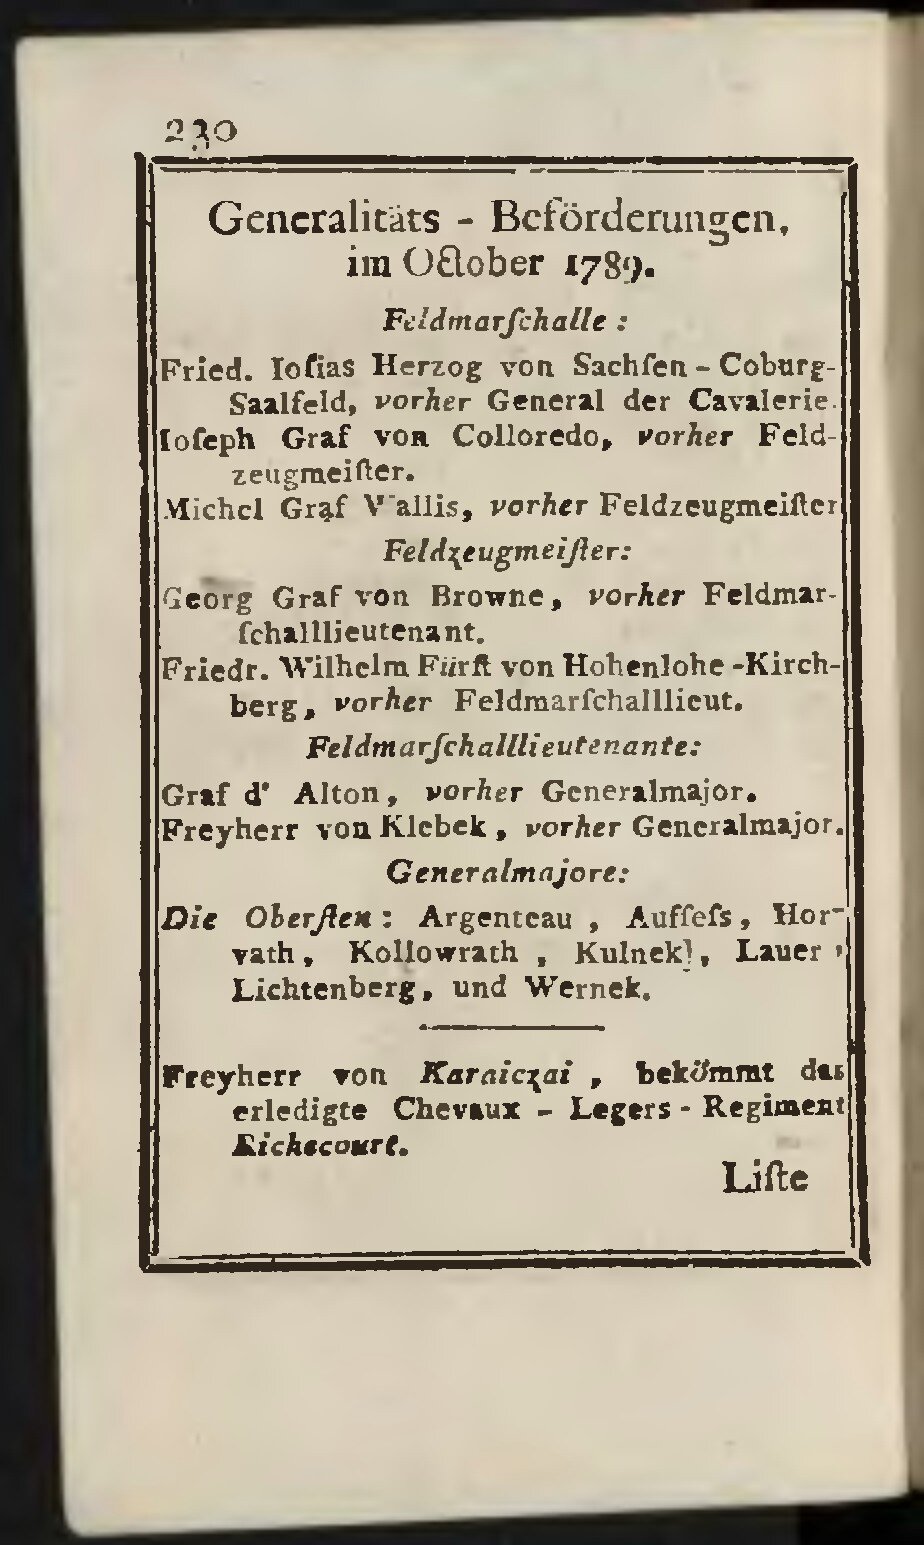 230
Generalitäts - Beförderungen,
im October 1789.
Feldmarſchalle :
Fried. Ioſias Herzog von Sachſen - Coburg-
Saalfeld, vorher General der Cavalerie.
Ioſeph Graf von Colloredo, vorher Feld-
zeugmeiſter.
Michel Graf Wallis, vorher Feldzeugmeiſter
Feldzeugmeiſter:
Georg Graf von Browne, vorher Feldmar-
ſchalllieutenant.
Friedr. Wilhelm Fürſt von Hohenlohe -Kirch-
berg, vorher Feldmarſchalllieut.
Feldmarſchalllieutenante:
Graf d' Alton, vorher Generalmajor.
Freyherr von Klebek, vorher Generalmajor.
Generalmajore:
Die Oberſten : Argenteau , Auffeſs, Hor-
vath, Kollowrath , Kulnekl, Lauer ,
Lichtenberg, und Wernek.
Freyherr von Karaiczai , bekömmt das
erledigte Chevaux - Legers - Regiment
Richecourt.
Liſte